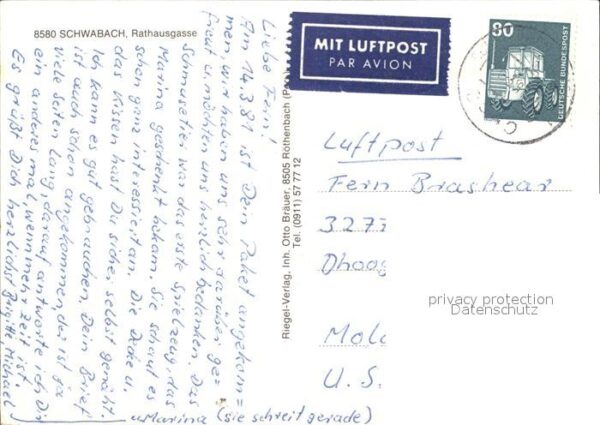 8580 SCHWABACH, Rathausgasse
Liebe Fern!
Am 14.3.81 ist Dein Paket angekom=
men, wir haben uns sehr darüber ge=
freut u. möchten uns herzlich bedanken. Das
Schmusetier war das erste Spielzeug, das
Marina geschenkt bekam. Sie schaut es
schon ganz interessiert an. Die Decke u.
das Kissen hast Du sicher selbst genäht.
Ich kann es gut gebrauchen. Dein Brief
ist auch schon angekommen, der ist ja
viele Seiten lang, darauf antworte ich Dir
ein anderes mal, wenn mehr Zeit ist.
Es grüßt Dich herzlichst Brigitte, Michael
u. Marina (sie schreit gerade)
Riegel-Verlag, Inh. Otto Bräuer, 8505 Röthenbach
Tel. (0911) 57 77 12
MIT LUFTPOST
PAR AVION
80
DEUTSCHE BUNDESPOST
Luftpost
Fern Brashear
3277
Dhoag
Mola
U.S.
privacy protection
Datenschutz